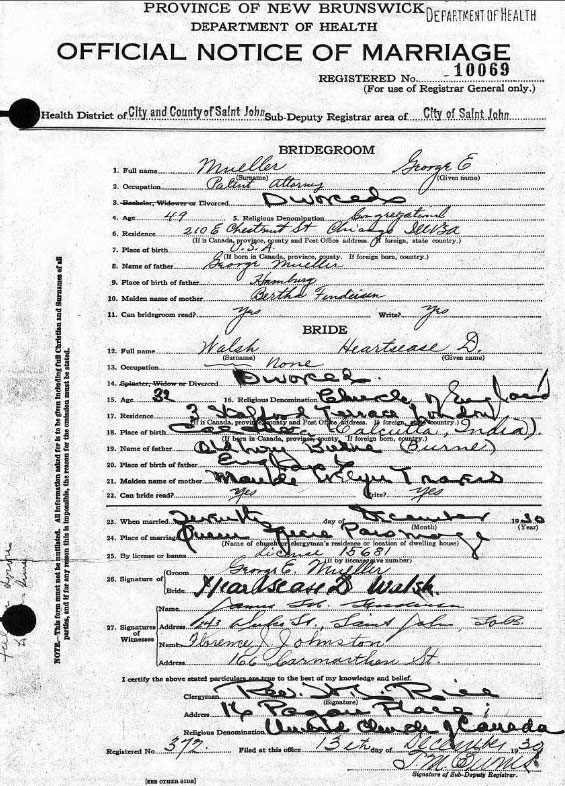 PROVINCE OF NEW BRUNSWICK DEPARTMENT OF HEALTH
DEPARTMENT OF HEALTH
OFFICIAL NOTICE OF MARRIAGE
REGISTERED No. 10069
(For use of Registrar General only.)
Health District of City and County of Saint John Sub-Deputy Registrar area of City of Saint John
BRIDEGROOM
1. Full name Mueller George E
(Surname) (Given name)
2. Occupation Patent Attorney
3. Bachelor, Widower or Divorced Divorced
4. Age 49 5. Religious Denomination Congregational
6. Residence 210 E Chestnut St Chicago
(If is Canada, province, county and Post Office address. If foreign, state country.)
7. Place of birth U.S.A.
(If born in Canada, province, county. If foreign born, country.)
8. Name of father George Mueller
9. Place of birth of father Hamburg
10. Maiden name of mother Bertha
11. Can bridegroom read? Yes Write? Yes
BRIDE
12. Full name Walsh Heartsease D.
(Surname) (Given name)
13. Occupation None
14. Spinster, Widow or Divorced Divorced.
15. Age 32 16. Religious Denomination Church of England
17. Residence 3 Stafford Terrace London
(If is Canada, province, county and Post Office address. If foreign, state country.)
18. Place of birth Calcutta, India)
(If born in Canada, province, county. If foreign born, country.)
19. Name of father (Burne)
20. Place of birth of father England
21. Maiden name of mother Maude Evelyn Travers
22. Can bride read? Yes Write? Yes
23. When married Seventh day of December 1930
(Month) (Year)
24. Place of marriage Queen Square Parsonage
(Name of church or clergyman's residence or location of dwelling house)
25. By license or banns License 15681
(If by license give number)
26. Signature of Groom George E. Mueller
Bride Heartsease D Walsh.
27. Signatures of Witnesses
Name James
Address St, Saint John, N.B
Name Florence J. Johnston
Address 166 Carmarthen St.
I certify the above stated particulars are true to the best of my knowledge and belief.
Clergyman Rev. Rice
(Signature)
Address 16 Pagan Place
Religious Denomination United Church of Canada
Registered No. 372 Filed at this office 13th day of December 1930
Signature of Sub-Deputy Registrar.
[SEE OTHER SIDE]
NOTE—This form must not be mutilated. All information asked for is to be given including full Christian and Surnames of all
parties, and if for any reason this is impossible, the reason for the omission must be stated.